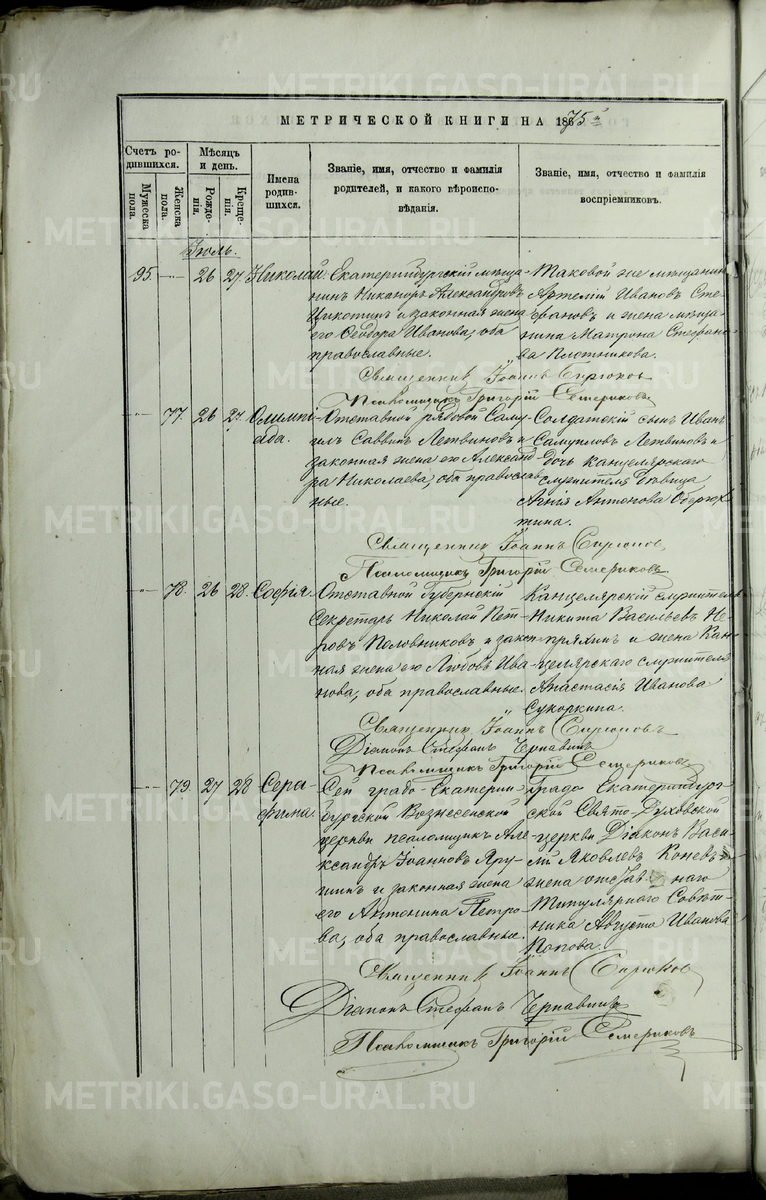 METRIKI.GASO-URAL.RU
МЕТРИЧЕСКОЙ КНИГИ НА 1875 й
Счетъ родившихся.
Мужеска пола.
Женска пола.
Мѣсяцъ и день.
Рожденія.
Крещенія.
Имена родившихся.
Званіе, имя, отчество и фамилія родителей, и какого вѣроисповѣданія.
Званіе, имя, отчество и фамилія воспріемниковъ.
Іюль.
95. 26 27 Николай.
Екатеринбургскій мѣща-
нинъ Никаноръ Александровъ
и законная жена
его Ѳеодора Иванова, оба
православные.
Таковой же мѣщанинъ
Артемій Ивановъ Сте-
фановъ и жена мѣща-
нина Матрона Стефано-
ва Плотникова.
Священникъ Іоаннъ Спрюнов
Псаломщикъ Григорій Семериковъ
77. 26 27 Олимпі-
ада.
Отставной рядовой Саму-
илъ Саввинъ Летвиновъ и
законная жена его Александ-
ра Николаева, оба православ-
ные.
Солдатскій сынъ Иванъ
Самуиловъ Летвиновъ и
дочь канцелярскаго
служителя дѣвица
Агнія Антонова
Священникъ Іоаннъ
Псаломщикъ Григорій Семериковъ
78. 26 28. Софія.
Отставной Губернскій
Секретарь Николай Пет-
ровъ Половниковъ и закон-
ная жена его Любовь Ива-
нова, оба православные.
Канцелярскій служитель
Никита Васильевъ Не-
пряхинъ и жена Кан-
целярскаго служителя
Анастасія Иванова
Сукоркина.
Священникъ Іоаннъ
Діаконъ Стефанъ Чернавинъ
Псаломщикъ Григорій Семериковъ
79. 27 28 Сера-
фима.
Сей градо-Екатерин-
бургской Вознесенской
церкви псаломщикъ Але-
ксандръ Іоанновъ Яру-
шинъ и законная жена
его Антонина Петро-
ва, оба православные.
Градо Екатеринбург-
ской Свято-Духовской
церкви Діаконъ Васи-
лій Яковлевъ Коневъ и
жена отставнаго
Титулярнаго Совѣт-
ника Августа Иванова
Попова.
Священникъ Іоаннъ
Діаконъ Стефанъ Чернавинъ
Псаломщикъ Григорій Семериковъ
METRIKI.GASO-URAL.RU